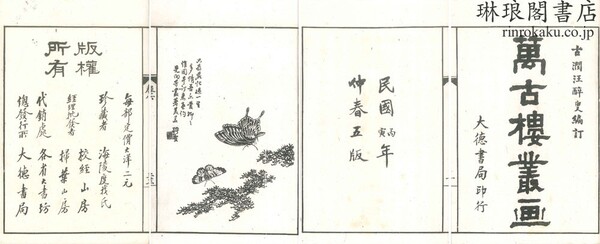 琳琅閣書店
rinrokaku.co.jp
古潤汪醉叟編訂
萬古樓叢画
大德書局印行
民國丙寅年
仲春五版
版權
所有
每部定價大洋二元
珍藏者 海陵氏
經理批發者 校經山房
掃葉山房
代銷處 各省大書坊
總發行所 大德書局